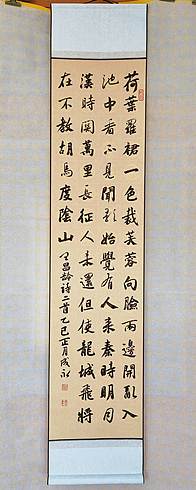 荷葉羅裙一色裁芙蓉向臉兩邊開亂入
池中看不見聞歌始覺有人来秦時明月
漢時関萬里長征人未還但使龍城飛將
在不教胡馬度陰山 王昌齡詩二首乙巳正月成